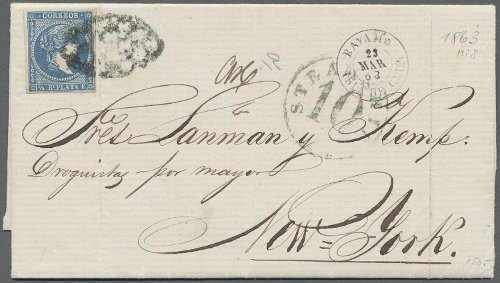 CORREOS
½ RL PLATA F.
BAYAMO
23
MAR
63
1863
STEA
10
Sres Lanman y Kemp.
Droguistas por mayor
New=York.